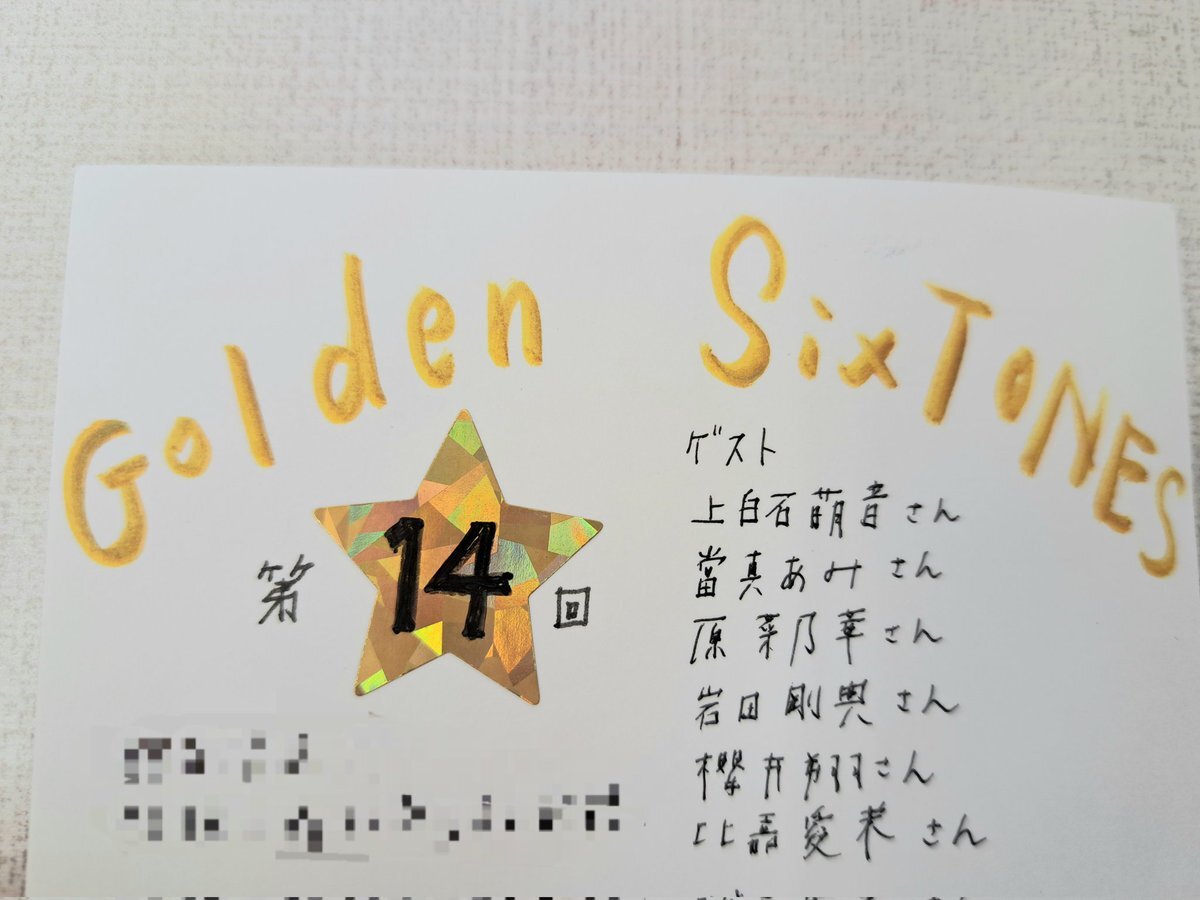 Golden SixTONES
第14回
ゲスト
上白石萌音さん
當真あみさん
原菜乃華さん
岩田剛典さん
櫻井翔さん
比嘉愛未さん